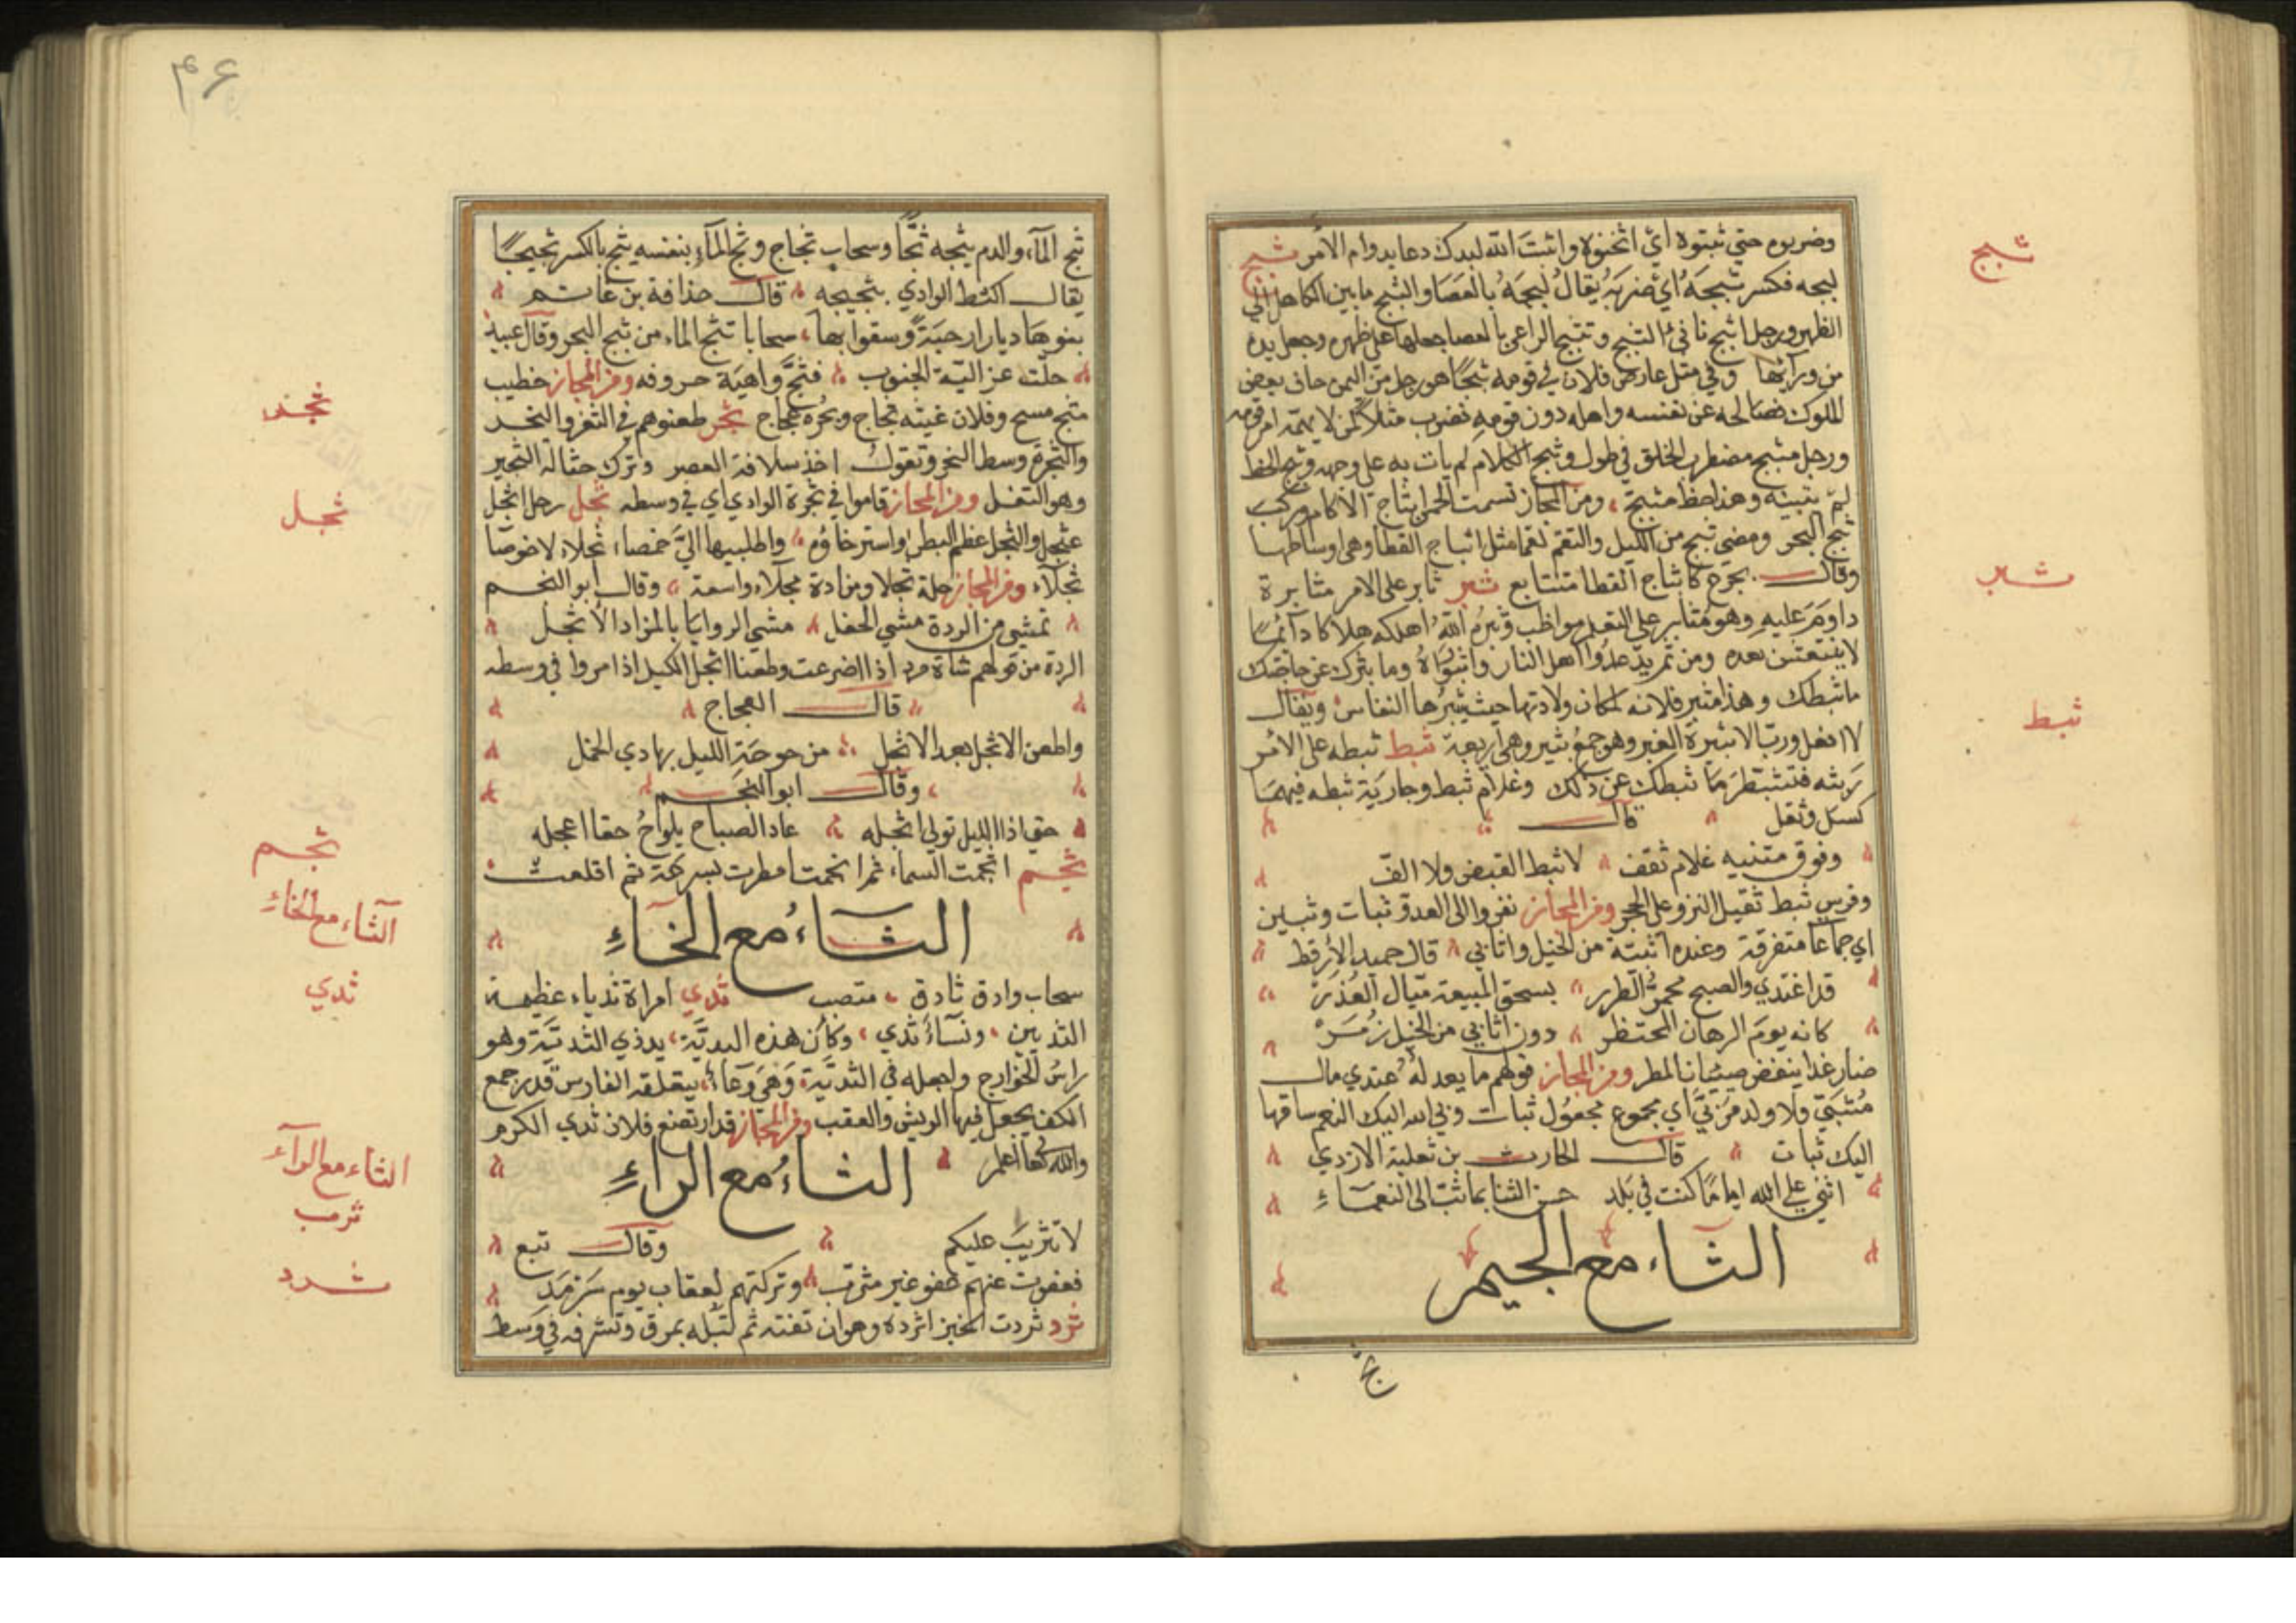 وضربوه حتي ثبتوه اي اثخنوه واثبت الله لبدك دعا بدوام الامر ثبج
لبجه فكسر ثبجه اي ضربه يقال لبجه بالعصا والثبج ما بين الكاهل الي
الظهر ورجل اثبج ناتئ الثبج وتثبج الراعي بالعصا جعلها علي ظهره وجعل يده
من ورآئها وفي مثل عارض فلان في قومه ثبجا هو رجل من اليمن حاف بعض
الملوك فصالحه عن نفسه واهله دون قومه فضرب مثلا لمن لا يهمه امر قومه
ورجل مثبج مضطرب الخلق في طول وثبج الكلام لم يات به علي وجهه وثبج الخط
لم يبينه وهذا خط مثبج ومن المجاز تسمت الحمر اثباج الاكام وركب
ثبج البحر ومضي ثبج من الليل والتقم لقما مثل اثباج القطا وهي اوساطها
وقال بجرع كاثباج القطا متتابع ثبر ثابر علي الامر مثابرة
داوم عليه وهو مثابر علي التعلم مواظب وثبره الله اهلكه هلاكا دآئما
لا ينتعش بعده ومن ثم يدعوا اهل النار واثبوراه وما ثبرك عن حاجتك
ماثبطك وهذا مثبر فلانه لمكان ولادتها حيث يثبرها النفاس ويقال
لا افعل ورب الاثبرة الغبر وهو جمع ثبير وهي اربعة ثبط ثبطه علي الامر
ريثه فتثبط وما ثبطك عن ذلك وغلام ثبط وجارية ثبطه فيهما
كسل وثقل قال
وفوق متنيه غلام ثقف لا ثبط القبض ولا الف
وفرس ثبط ثقيل النزو علي الحجر ومن المجاز نفروا الي العدو ثبات وثبين
اي جماعا متفرقة وعنده اثبتة من الخيل واثابي قال حميد الارقط
قد اغتدي والصبح محمر الطرر بسحق الميعة ميال العذر
كانه يوم الرهان المحتضر دون اثابي من الخيل زمر
ضار غدا ينفض صيبان المطر ومن المجاز قولهم ما يعد له عندي مال
مثبي ولا ولد مربي اي مجموع مجعول ثبات وثبي الله اليك النعم ساقها
اليك ثبات قال الحارث بن ثعلبة الازدي
اثني علي الله اياما كنت في بلد حسن الثنا بما ثبت الي النعمآء
الثاء مع الجيم
ثج
ثبج
ثبر
ثبط
۴۶
ثج المآء والدم يثجه ثجا وسحاب ثجاج وثج المآء بنفسه يثج بالكسر ثجيجا
يقال اكتظ الوادي بثجيجه قال حذافة بن غانم
بنوها ديارا رحبة وسقوا بها سحابا تثج الماء من ثبج البحر وقال عبيد
حلت عزاليه الجنوب فثج واهية خروقه ومن المجاز خطيب
مثج مسح وفلان غيثه ثجاج وبحره عجاج ثجر طعنوهم في الثغر والثجر
والثجرة وسط النحر وتقول اخذ سلافة العصر وترك حثالة الثجير
وهو الثفل ومن المجاز قاموا في ثجرة الوادي اي في وسطه ثجل رجل اثجل
عثجل والثجل عظم البطن واسترخاؤه واطلبيها الي خمصاء ثجلاء لا خوصا
ثجلآء ومن المجاز جلة ثجلا ومزادة ثجلاء واسعة وقال ابو النجم
تمشي من الردة مشي الحفل مشي الروايا بالمزاد الاثجل
الردة من قولهم شاة مرد اذا اضرعت وطعنا اثجل الليل اذا مروا في وسطه
قال العجاج
واطعن الاثجل بعد الاثجل من حومة الليل بهادي الجمل
وقال ابو النجم
حتي اذا الليل تولي اثجله عاد الصباح يلواح حقا اعجله
ثجم اثجمت السماء ثم انجمت امطرت بسرعة ثم اقلعت
الثاء مع الخاء
سحاب وادق ثادق منصب ثدي امراة ثدياء عظيمة
الثديين ونساء ثدي وكان هذه البدية يد ذي الثدية وهو
راس الخوارج واجعله في الثدية وهي وعاء يعلقه الفارس قدر جمع
الكف يجعل فيها الريش والعقب ومن المجاز قد ارتضع فلان ثدي الكرم
والله تعا اعلم
الثاء مع الراء
لا تثريب عليكم وقال تبع
فعفوت عنهم عفو غير مثرب وتركتهم لعقاب يوم سرمد
ثرد ثردت الخبز اثرده وهو ان تفته ثم تبله بمرق وتشرفه في وسط
ثجر
ثجل
ثجم
الثآء مع الخاء
ثدي
الثاء مع الرآء
ثرب
ثرد